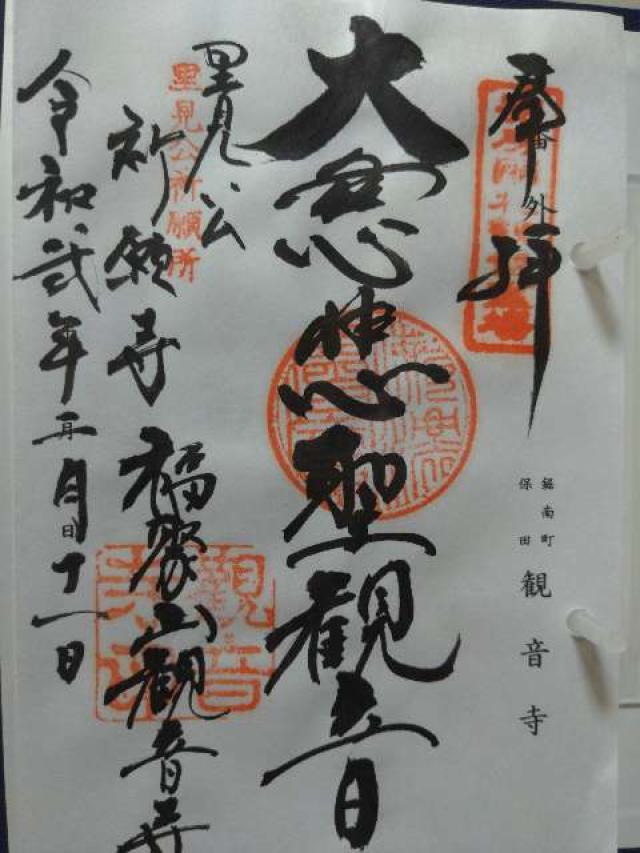 奉拝
番外
鋸南町
保田
観音寺
大慈悲聖観音
里見公
里見公祈願所
祈願寺 福聚山観音寺
観音
令和弐年二月十一日
月日